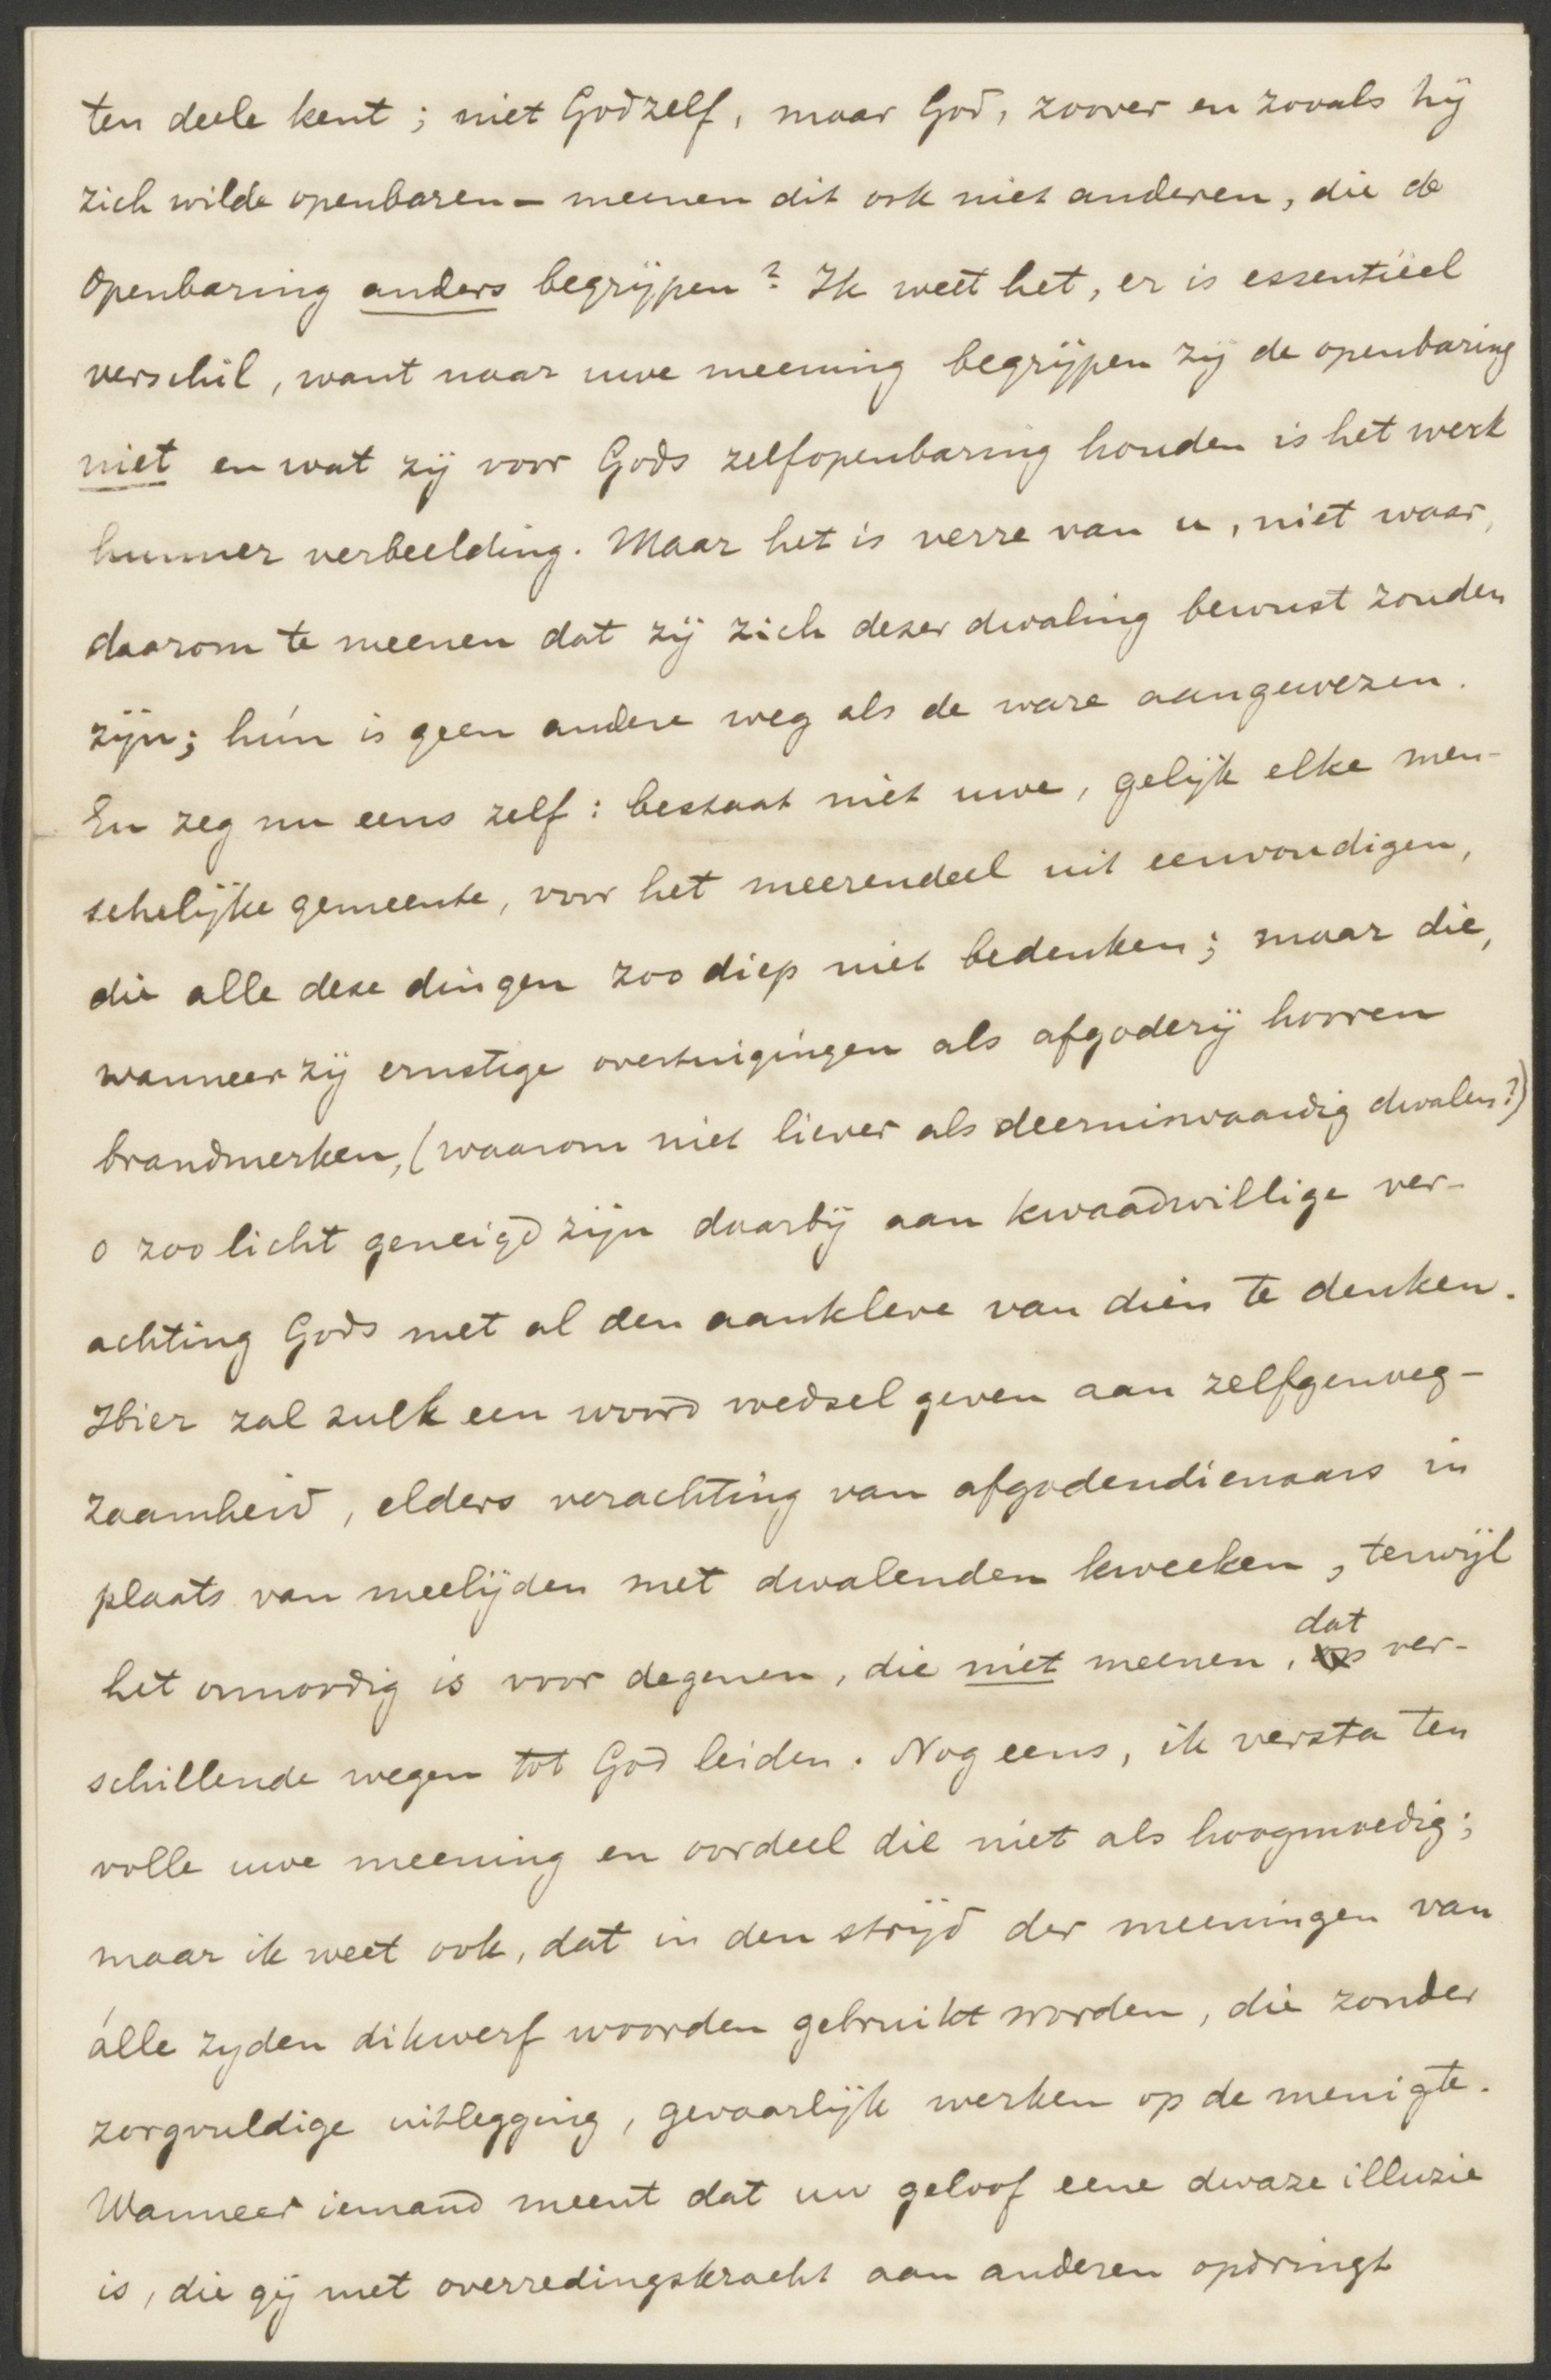 ten deele kent; niet God zelf, maar God, zoover en zooals hij
zich wilde openbaren – meenen dit ook niet anderen, die de
openbaring anders begrijpen? Ik weet het, er is essentieel
verschil, want naar uwe meening begrijpen zij de openbaring
niet en wat zij voor Gods zelfopenbaring houden is het werk
hunner verbeelding. Maar het is verre van u, niet waar,
daarom te meenen dat zij zich dezer dwaling bewust zouden
zijn; hún is geen andere weg als de ware aangewezen.
En zeg nu eens zelf: bestaat niet uwe, gelijk elke men-
schelijke gemeente, voor het meerendeel uit eenvoudigen,
die alle deze dingen zoo diep niet bedenken; maar die,
wanneer zij ernstige overtuigingen als afgoderij hooren
brandmerken, (waarom niet liever als deerniswaardig dwalen?)
o zoo licht geneigd zijn daarbij aan kwaadwillige ver-
achting Gods met al den aankleve van dien te denken.
Hier zal zulk een woord voedsel geven aan zelfgenoeg-
zaamheid, elders verachting van afgodendienaars in
plaats van meelijden met dwalenden kweeken, terwijl
het onnoodig is voor degenen, die niet meenen, dat ver-
schillende wegen tot God leiden. Nog eens, ik versta ten
volle uwe meening en oordeel die niet als hoogmoedig;
maar ik weet ook, dat in den strijd der meeningen van
álle zyden dikwerf woorden gebruikt worden, die zonder
zorgvuldige uitlegging, gevaarlijk werken op de menigte.
Wanneer iemand meent dat uw geloof eene dwaze illuzie
is, die gij met overredingskracht aan anderen opdringt